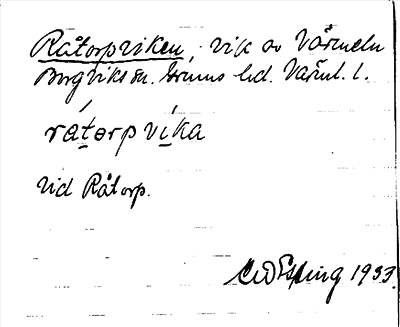 Råtorpviken, vik av Värmeln
Borgviks sn. Grums hd. Värml. l.
rátorp víka
vid Råtorp.
Esping 1933.